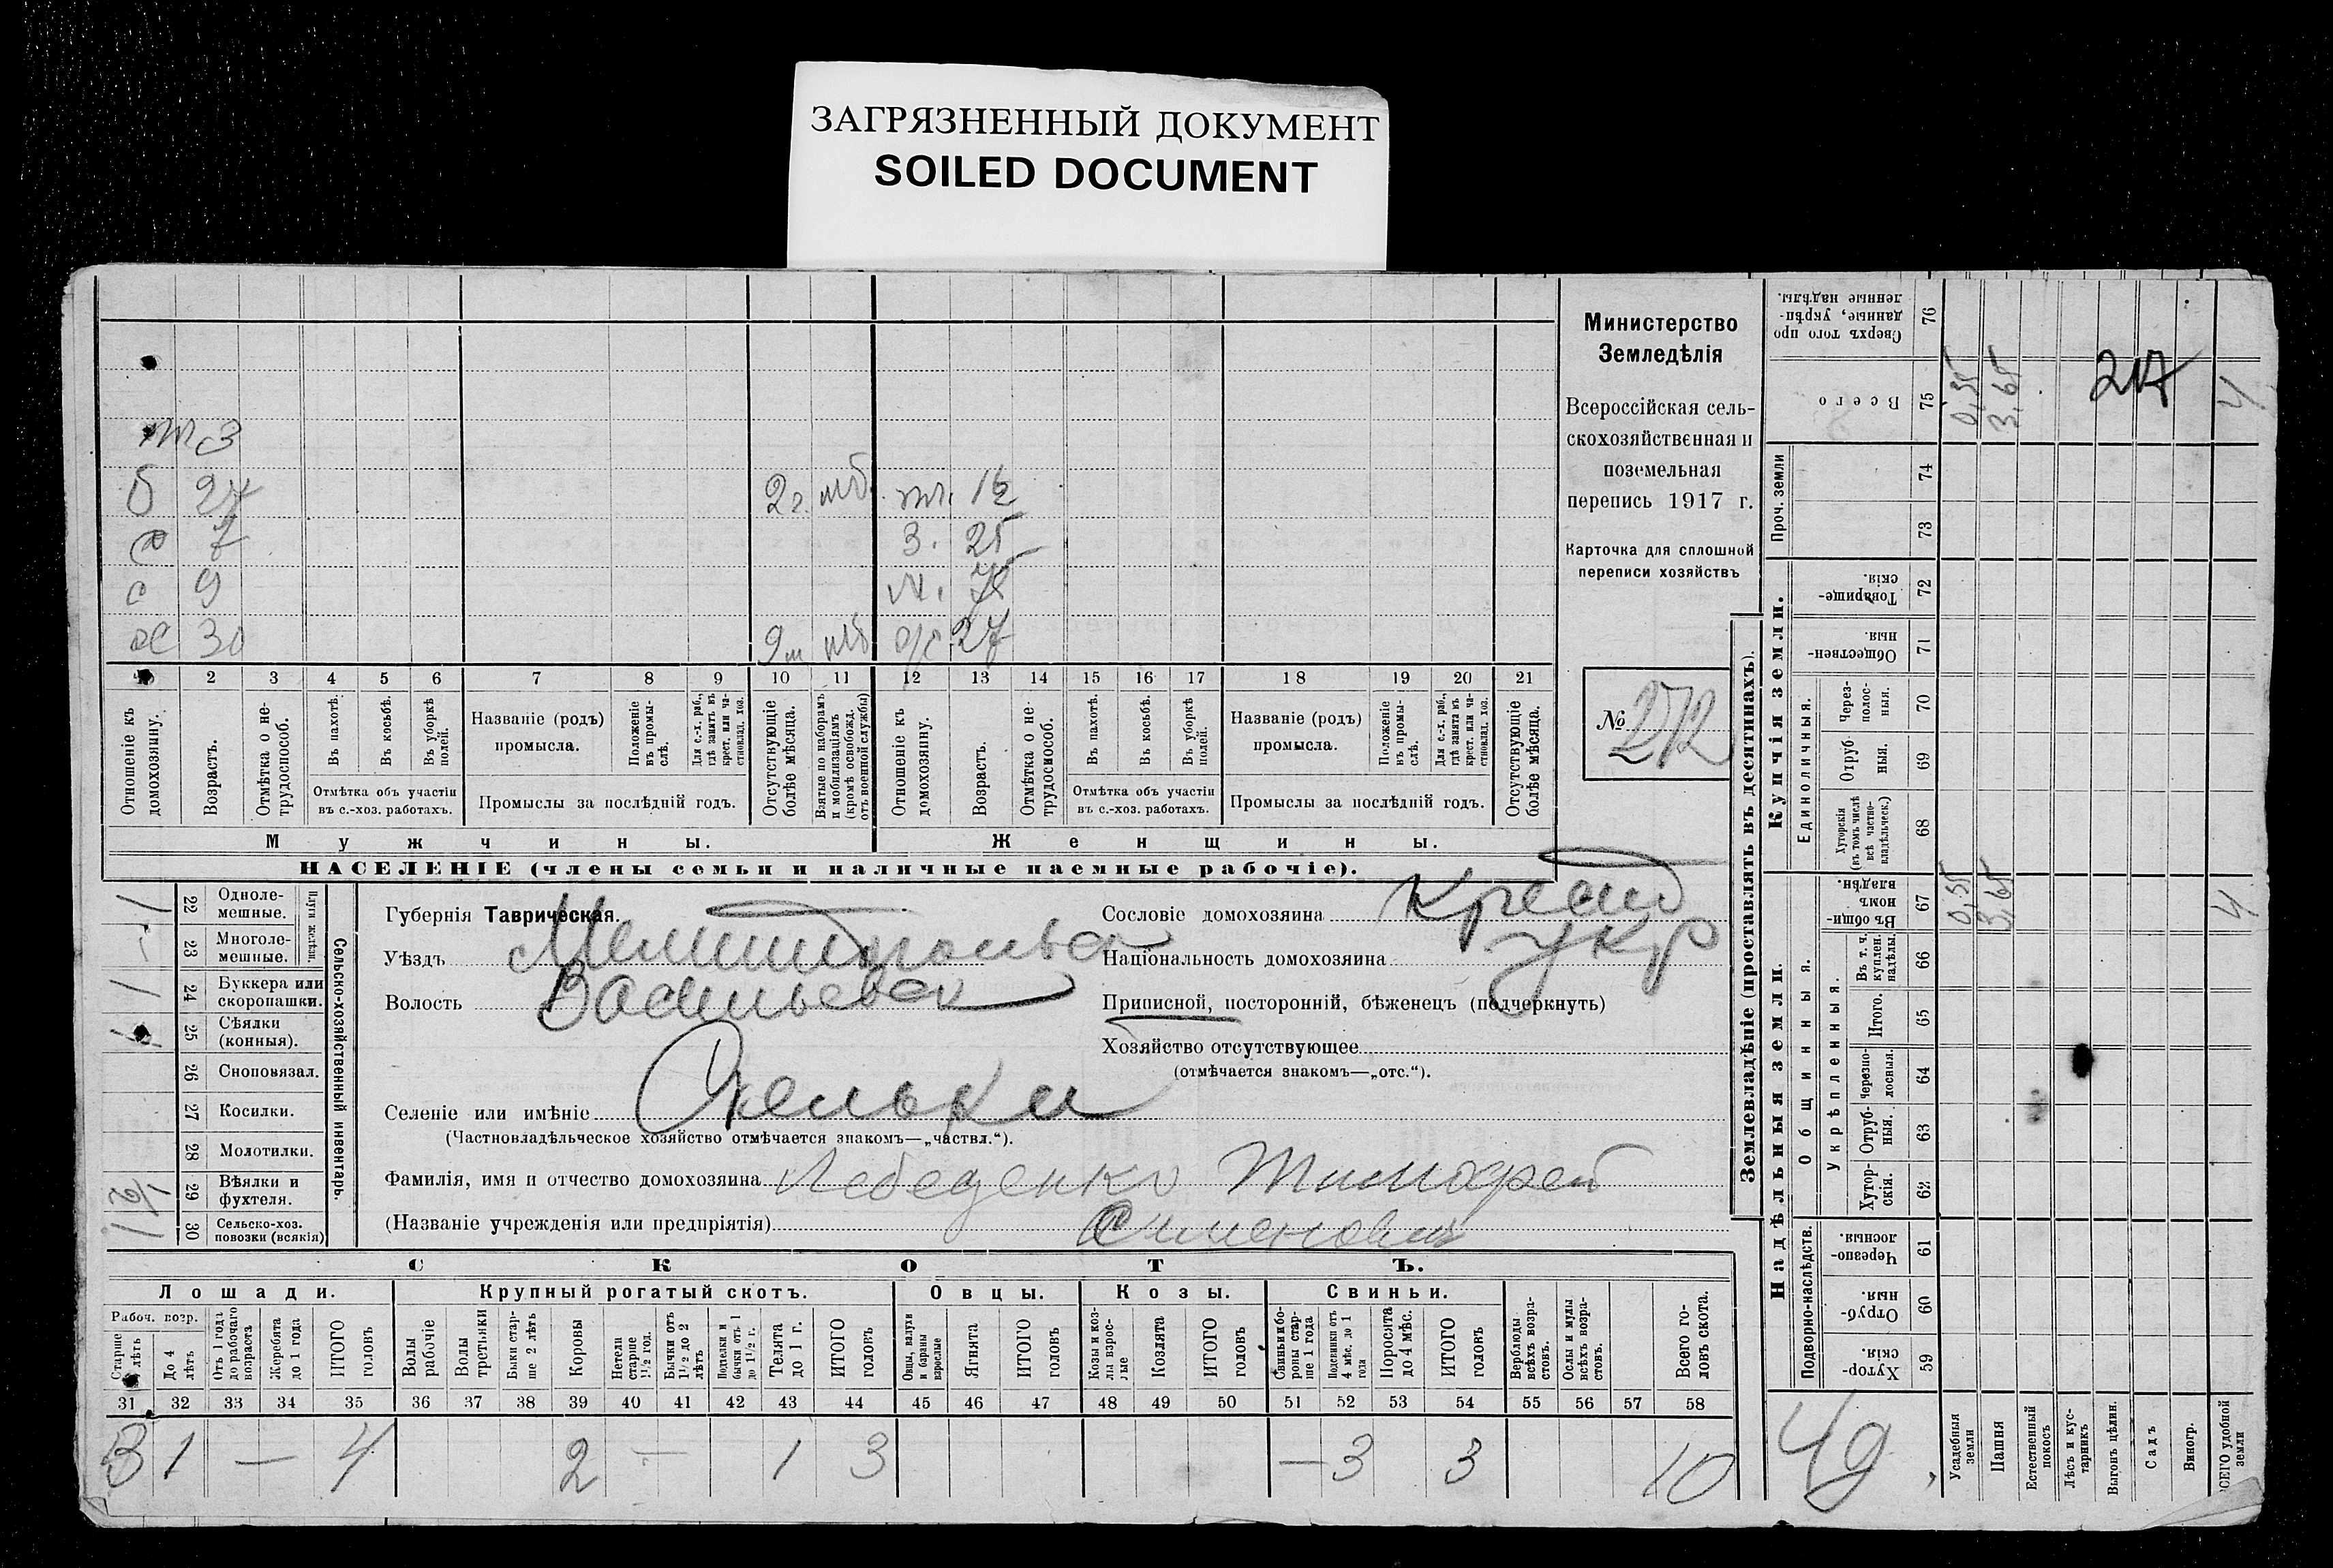 ЗАГРЯЗНЕННЫЙ ДОКУМЕНТ
SOILED DOCUMENT
Министерство
Земледѣлія
Всероссійская сель-
скохозяйственная и
поземельная
перепись 1917 г.
Карточка для сплошной
переписи хозяйствъ
№ 272
б 27 2 г. мб. 
З. 25
с 9 М.
30 9 м мб 27
1 2 3 4 5 6 7 8 9 10 11 12 13 14 15 16 17 18 19 20 21
Отношеніе къ домохозяину.
Возрастъ.
Отмѣтка о не-трудоспособ.
Въ пахотѣ.
Въ косьбѣ.
Въ уборкѣ полей.
Отмѣтка объ участіи
въ с.-хоз. работахъ.
Названіе (родъ)
промысла.
Положеніе въ промы-слѣ.
Для с.-х. раб., гдѣ занятъ въ крест. или ча-стновлад. хоз.
Промыслы за послѣдній годъ.
Отсутствующіе болѣе мѣсяца.
Взятые по наборамъ и мобилизаціямъ (кромѣ освобожд. отъ военной службы)
Отношеніе къ домохозяину.
Возрастъ.
Отмѣтка о не-трудоспособ.
Въ пахотѣ.
Въ косьбѣ.
Въ уборкѣ полей.
Отмѣтка объ участіи
въ с.-хоз. работахъ.
Названіе (родъ)
промысла.
Положеніе въ промы-слѣ.
Для с.-х. раб., гдѣ занята въ крест. или ча-стновлад. хоз.
Промыслы за послѣдній годъ.
Отсутствующіе болѣе мѣсяца.
Мужчины. Женщины.
НАСЕЛЕНІЕ (члены семьи и наличные наемные рабочіе).
Сельско-хозяйственный инвентарь.
22 Одноле-мешные.
23 Многоле-мешные.
24 Буккера или скоропашки.
25 Сѣялки (конныя).
26 Сноповязал.
27 Косилки.
28 Молотилки.
29 Вѣялки и фухтеля.
30 Сельско-хоз. повозки (всякія)
Губернія Таврическая.
Уѣздъ Мелитопольск
Волость Васильевск
Селеніе или имѣніе Скельки
(Частновладѣльческое хозяйство отмѣчается знакомъ—„частвл.“).
Фамилія, имя и отчество домохозяина Лебеденко Тимофей
(Названіе учрежденія или предпріятія) Сименович
Сословіе домохозяина Крест
Національность домохозяина укр
Приписной, посторонній, бѣженецъ (подчеркнуть)
Хозяйство отсутствующее
(отмѣчается знакомъ—„отс.“).
СКОТЪ.
Лошади. Крупный рогатый скотъ. Овцы. Козы. Свиньи.
Рабоч. возр.
Старше лѣтъ
До 4 лѣтъ
Отъ 1 года до рабочаго возраста
Жеребята до 1 года
ИТОГО головъ
Волы рабочіе
Волы третьяки
Быки стар-ше 2 лѣтъ
Коровы
Нетели старше 1½ год.
Бычки отъ 1½ до 2 лѣтъ
Подтелки и бычки отъ 1 до 1½ г.
Телята до 1 г.
ИТОГО головъ
Овцы, валухи и бараны взрослые
Ягнята
ИТОГО головъ
Козы и коз-лы взрос-лые
Козлята
ИТОГО головъ
Свиньи и бо-ровы стар-ше 1 года
Подсвинки отъ 4 мѣс. до 1 года
Поросята до 4 мѣс.
ИТОГО головъ
Верблюды всѣхъ возра-стовъ.
Ослы и мулы всѣхъ возра-стовъ.
Всего го-ловъ скота.
31 32 33 34 35 36 37 38 39 40 41 42 43 44 45 46 47 48 49 50 51 52 53 54 55 56 57 58
3 1 — 4 2 — 1 3 — 3 3 10
Землевладѣніе (проставлять въ десятинахъ).
Надѣльныя земли.
Купчія земли.
Проч. земли
Подворно-наслѣдств.
Общинныя.
Укрѣпленныя.
Единоличныя.
Сверхъ того про данные, укрѣп-ленные надѣлы. 76
Всего 75 0,35 3,65 4
74
73
Товарище-скія. 72
Обществен-ныя. 71
Через-полос-ныя. 70
Отруб-ныя. 69
Хуторскія (въ томъ числѣ всѣ частно-владѣльческ.) 68
Въ общин-номъ владѣн. 67 0,35 3,65 4
Въ т. ч. куплен. надѣлы. 66
Итого. 65
Черезпо-лосныя. 64
Отруб-ныя. 63
Хутор-скія. 62
Черезпо-лосныя 61
Отруб-ныя. 60
Хутор-скія. 59
Усадебныя земли
Пашня
Естественный покосъ
Лѣсъ и кус-тарникъ
Выгонъ цѣлин.
Садъ
Виногр.
ВСЕГО удобной земли
217